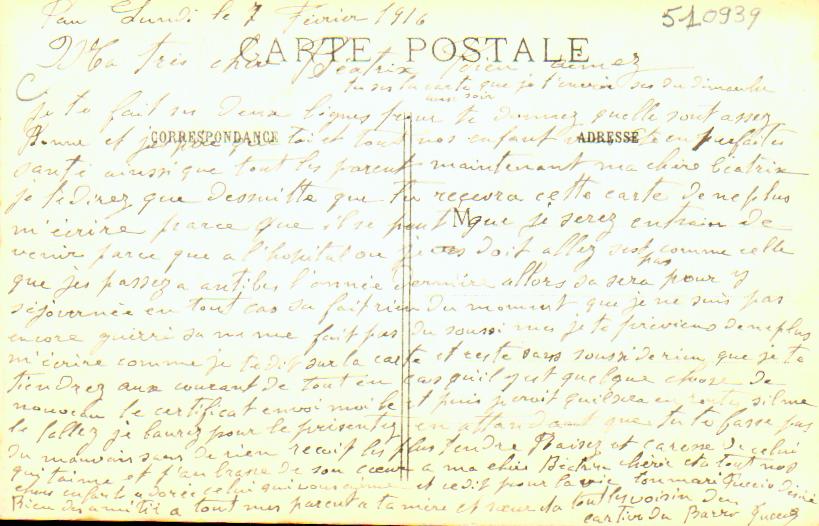 Pau Lundi le 7 Février 1916
510939
CARTE POSTALE
Ma très cher Béatrix bien aimez
tu sa carte que je t'envoi ses du dimanche
au soir
je te fait ses deux lignes pour te donnez quelle sont assez
CORRESPONDANCE
ADRESSE
Bonne et je que toi et tout nos enfant en parfaites
santé ainssi que tout les parent maintenant ma chère Béatrix
je te direz que dessuitte que tu recevra cette carte de ne plus
M
m'écrire parce que il se peut que je serez entrain de
venir parce que a l'hopital ou je doit allez sest comme celle
que jes passez a antibes l'année dernière allors sa sera pas pour y
séjournée en tout cas sa fait rien du moment que je ne suis pas
encore guerri sa ne me fait pas du soussi mes je te préviens de ne plus
m'écrire comme je te dit sur la carte et reste sans soussi de rien que je te
tiendrez aux courant de tout en cas qu'il y est quelque chose de
nouveau le certificat envoi moi le et puis quil sera en route sil me
le fallez je laurez pour le présentez en attendant que tu te fasse pas
du mauvais sans de rien recoit les plus tendre Baisez et caresse de celui
qui taime et t'anbrasse de son cœur a ma cher Béatrix chérie et a tout nos
chers enfants adorée celui qui vous aime et cedit pour la vie ton mari Puccio Désiré
Bien des amitié a tout mes parent a ta mère et sœur et a tout les voisin du
cartier du Barro Puccio